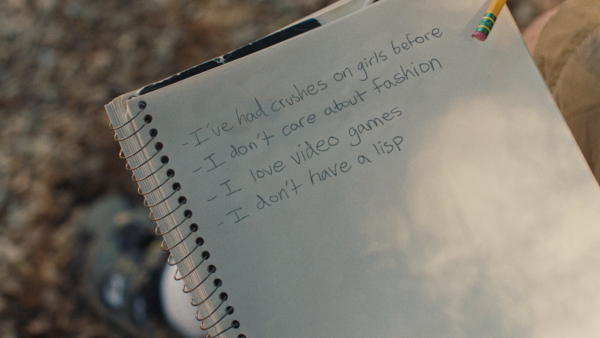 - I've had crushes on girls before
- I don't care about fashion
- I love video games
- I don't have a lisp